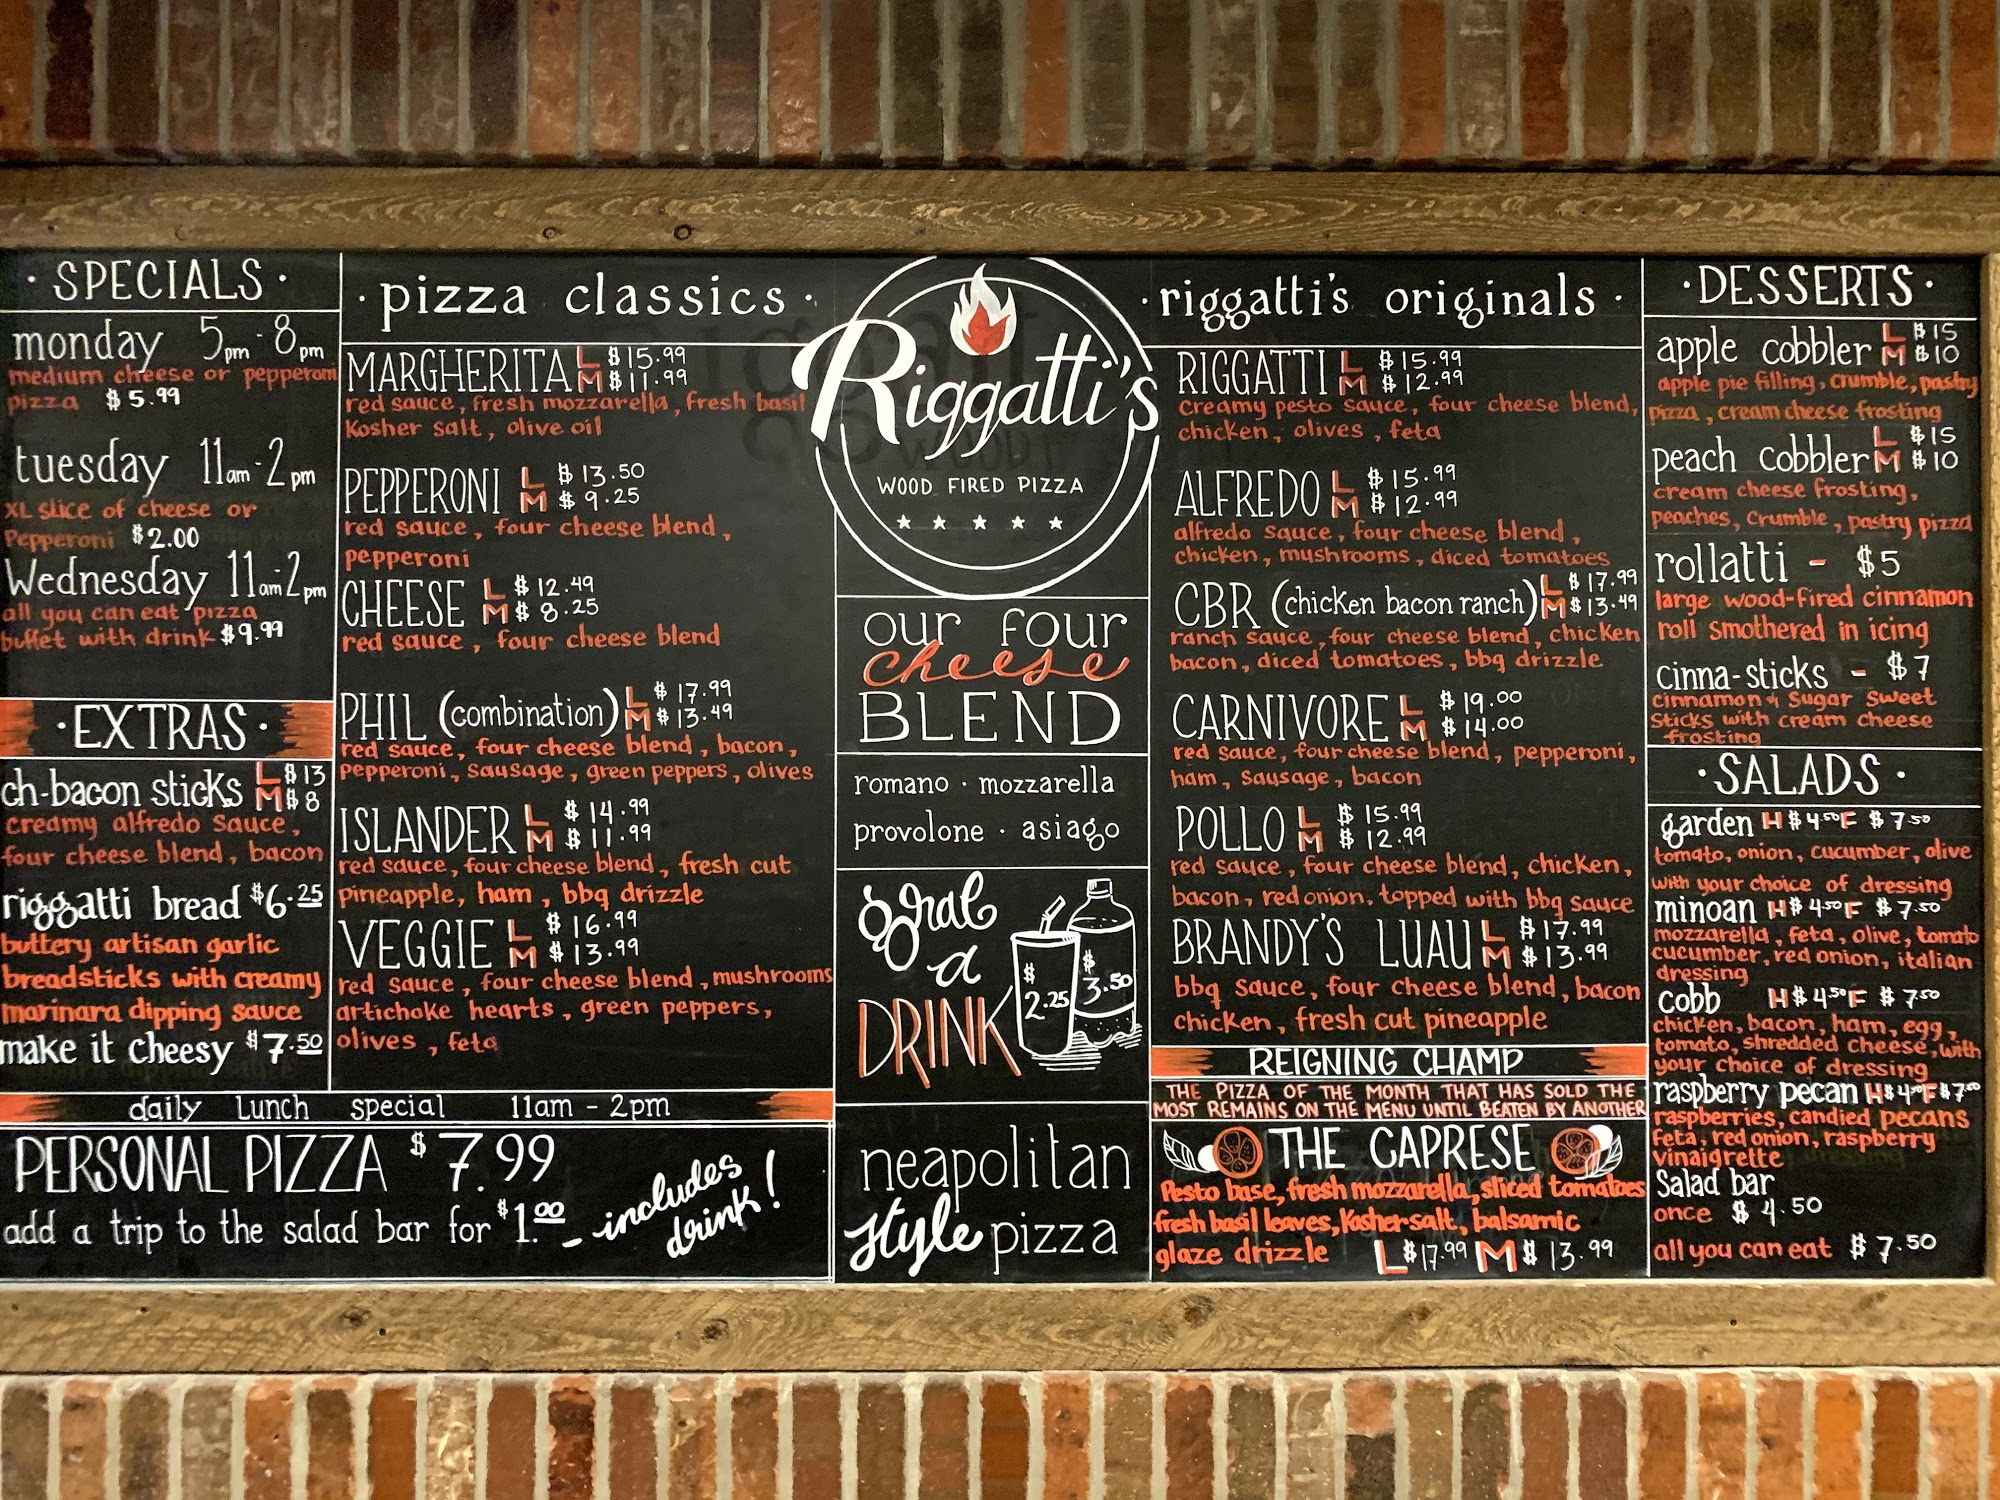 · SPECIALS ·
monday 5pm - 8pm
medium cheese or pepperoni
pizza $5.99
tuesday 11am - 2pm
XL slice of cheese or
Pepperoni $2.00
Wednesday 11am-2pm
all you can eat pizza
buffet with drink $9.99
· EXTRAS ·
ch-bacon sticks L $13
M $8
creamy alfredo sauce,
four cheese blend, bacon
riggatti bread $6.25
buttery artisan garlic
breadsticks with creamy
marinara dipping sauce
make it cheesy $7.50
· pizza classics ·
MARGHERITA L $15.99
M $11.99
red sauce, fresh mozzarella, fresh basil
Kosher salt, olive oil
PEPPERONI L $13.50
M $9.25
red sauce, four cheese blend,
pepperoni
CHEESE L $12.49
M $8.25
red sauce, four cheese blend
PHIL (combination) L $17.99
M $13.49
red sauce, four cheese blend, bacon,
Pepperoni, sausage, green peppers, olives
ISLANDER L $14.99
M $11.99
red sauce, four cheese blend, fresh cut
pineapple, ham, bbq drizzle
VEGGIE L $16.99
M $13.99
red sauce, four cheese blend, mushrooms
artichoke hearts, green peppers,
olives, feta
daily Lunch special 11am - 2pm
PERSONAL PIZZA $7.99
add a trip to the salad bar for $1.00 - includes
drink!
Riggatti's
WOOD FIRED PIZZA
our four
cheese
BLEND
romano · mozzarella
provolone · asiago
grab
a
DRINK
$2.25
$3.50
neapolitan
style pizza
· riggatti's originals ·
RIGGATTI L $15.99
M $12.99
Creamy pesto sauce, four cheese blend,
chicken, olives, feta
ALFREDO L $15.99
M $12.99
alfredo sauce, four cheese blend,
chicken, mushrooms, diced tomatoes
CBR (chicken bacon ranch) L $17.99
M $13.49
ranch sauce, four cheese blend, chicken
bacon, diced tomatoes, bbq drizzle
CARNIVORE L $19.00
M $14.00
red sauce, four cheese blend, pepperoni,
ham, sausage, bacon
POLLO L $15.99
M $12.99
red sauce, four cheese blend, chicken,
bacon, red onion, topped with bbq sauce
BRANDY'S LUAU L $17.99
M $13.99
bbq sauce, four cheese blend, bacon
chicken, fresh cut pineapple
REIGNING CHAMP
THE PIZZA OF THE MONTH THAT HAS SOLD THE
MOST REMAINS ON THE MENU UNTIL BEATEN BY ANOTHER
THE CAPRESE
Pesto base, fresh mozzarella, sliced tomatoes
fresh basil leaves, Kosher salt, balsamic
glaze drizzle L $17.99 M $13.99
· DESSERTS ·
apple cobbler L $15
M $10
apple pie filling, crumble, pastry
pizza, cream cheese frosting
peach cobbler L $15
M $10
cream cheese frosting,
peaches, crumble, pastry pizza
rollatti - $5
large wood-fired cinnamon
roll smothered in icing
cinna-sticks - $7
cinnamon & sugar sweet
sticks with cream cheese
frosting
· SALADS ·
garden H $4.50 F $7.50
tomato, onion, cucumber, olive
with your choice of dressing
minoan H $4.50 F $7.50
mozzarella, feta, olive, tomato
cucumber, red onion, italian
dressing
cobb H $4.50 F $7.50
chicken, bacon, ham, egg,
tomato, shredded cheese, with
your choice of dressing
raspberry pecan H $4.50 F $7.50
raspberries, candied pecans
feta, red onion, raspberry
vinaigrette
Salad bar
once $4.50
all you can eat $7.50